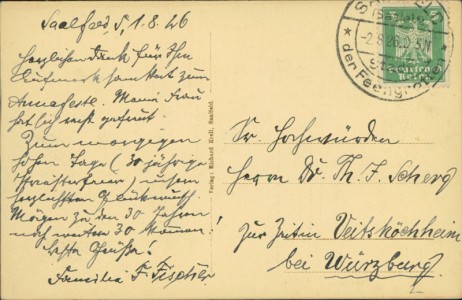 Saalfeld, S, 1.8.26
Herzlichen Dank für Ihre
Aufmerksamkeit zum
Annafeste. Meine Frau
hat sich recht gefreut.
Zum morgigen
hohen Tage (30 jährige
Priesterfeier) unsern
herzlichsten Glückwunsch.
Mögen zu den 30 Jahren
noch weitere 30 kommen!
Beste Grüße!
Familie F. Fischer
Verlag: Richard Kreil, Saalfeld.
-2.8.26.
der Feengrotten
Deutsches
Reich
5
Sr. Hochwürden
Herrn Dr. Th. J. Scherg
Zur Zeit in Veitshöchheim
bei Würzburg